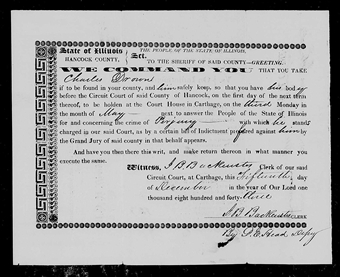 State of Illinois
HANCOCK COUNTY,
Sct.
THE PEOPLE OF THE STATE OF ILLINOIS,
TO THE SHERIFF OF SAID COUNTY—GREETING.
WE COMMAND YOU THAT YOU TAKE
Charles Drown
if to be found in your county, and him safely keep, so that you have his body
before the Circuit Court of said County of Hancock, on the first day of the next term
thereof, to be holden at the Court House in Carthage, on the third Monday in
the month of May next to answer the People of the State of Illinois
for and concerning the crime of Perjury with which he stands
charged in our said Court, as by a certain bill of Indictment preferred against him by
the Grand Jury of said county in that behalf appears.
And have you then there this writ, and make return thereon in what manner you
execute the same.
Witness, J. B. Backenstos Clerk of our said
Circuit Court, at Carthage, this fifteenth day
of December in the year of Our Lord one
thousand eight hundred and forty three
J. B. Backenstos CLERK
By Head Depty